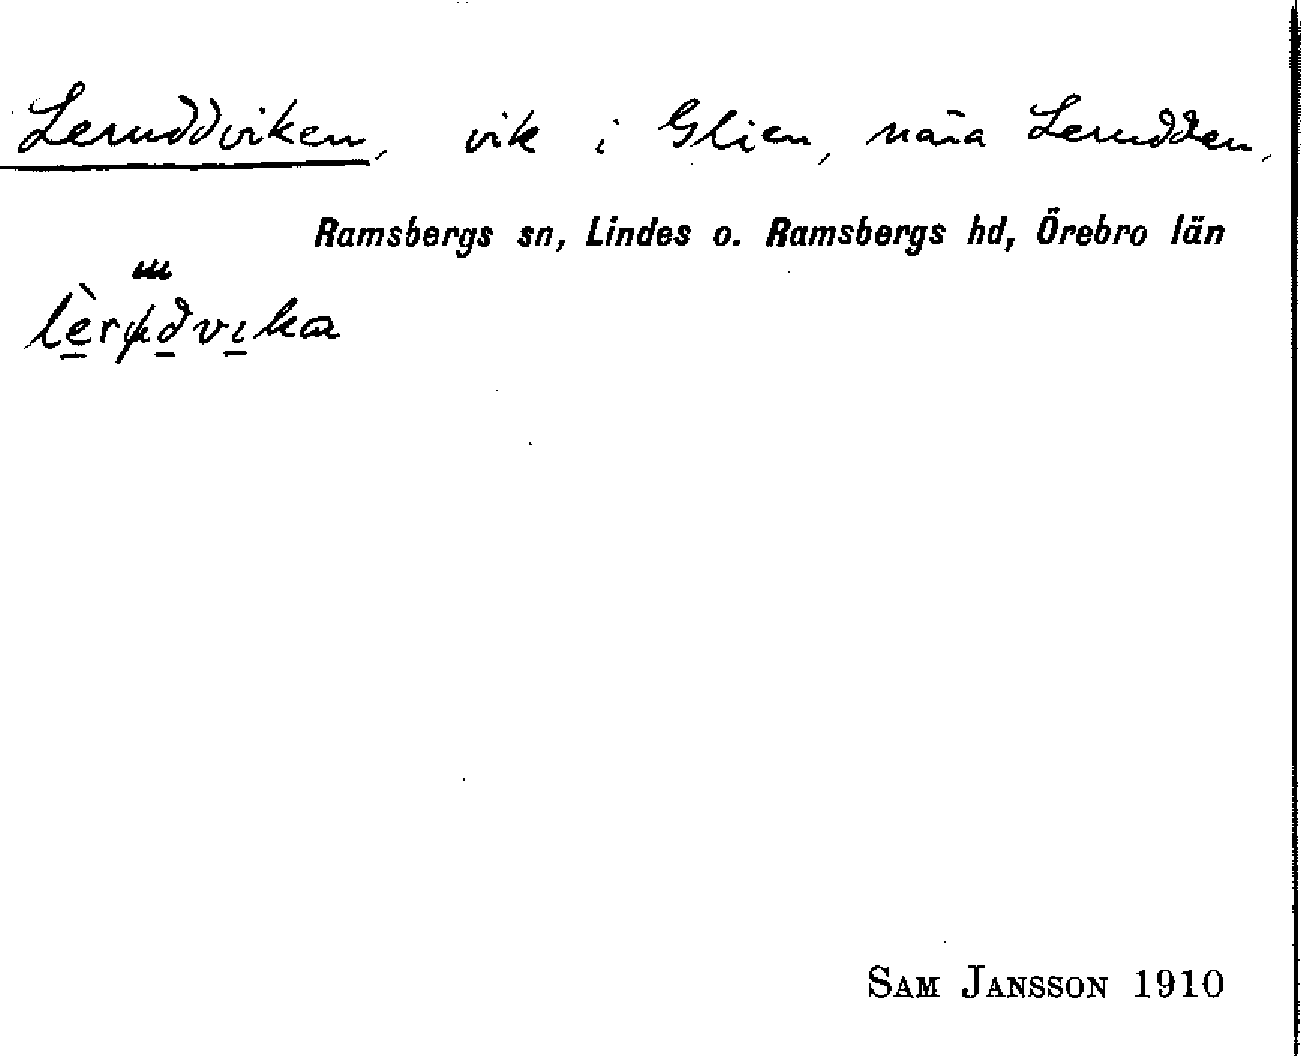 Leruddviken, vik i Glien, nära Lerudden.
Ramsbergs sn, Lindes o. Ramsbergs hd, Örebro län
SAM JANSSON 1910